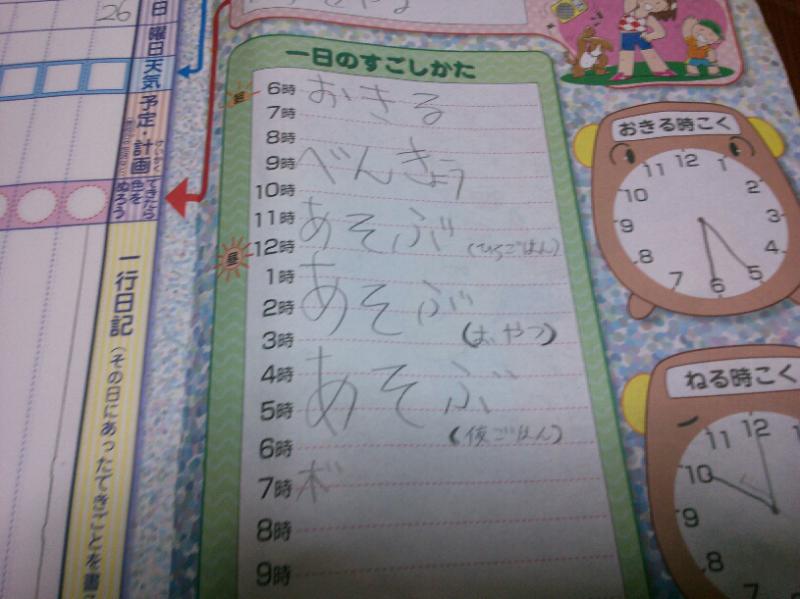 26
日
曜日
天気
予定・計画
できたら
色を
ぬろう
一行日記
(その日にあったできごとを書
一日のすごしかた
6時 おきる
7時
8時
9時 べんきょう
10時
11時 あそぶ
昼
12時 (ひるごはん)
1時
2時 あそぶ
3時 (おやつ)
4時
5時 あそぶ
6時 (夜ごはん)
7時
8時
9時
おきる時こく
12
1
2
3
4
5
6
7
8
9
10
11
ねる時こく
12
11
10
9
8